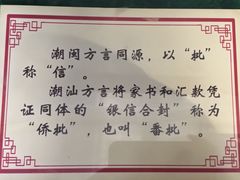 潮闽方言同源，以“批”
称“信”。
潮汕方言将家书和汇款凭
证同体的“银信合封”称为
“侨批”，也叫“番批”。